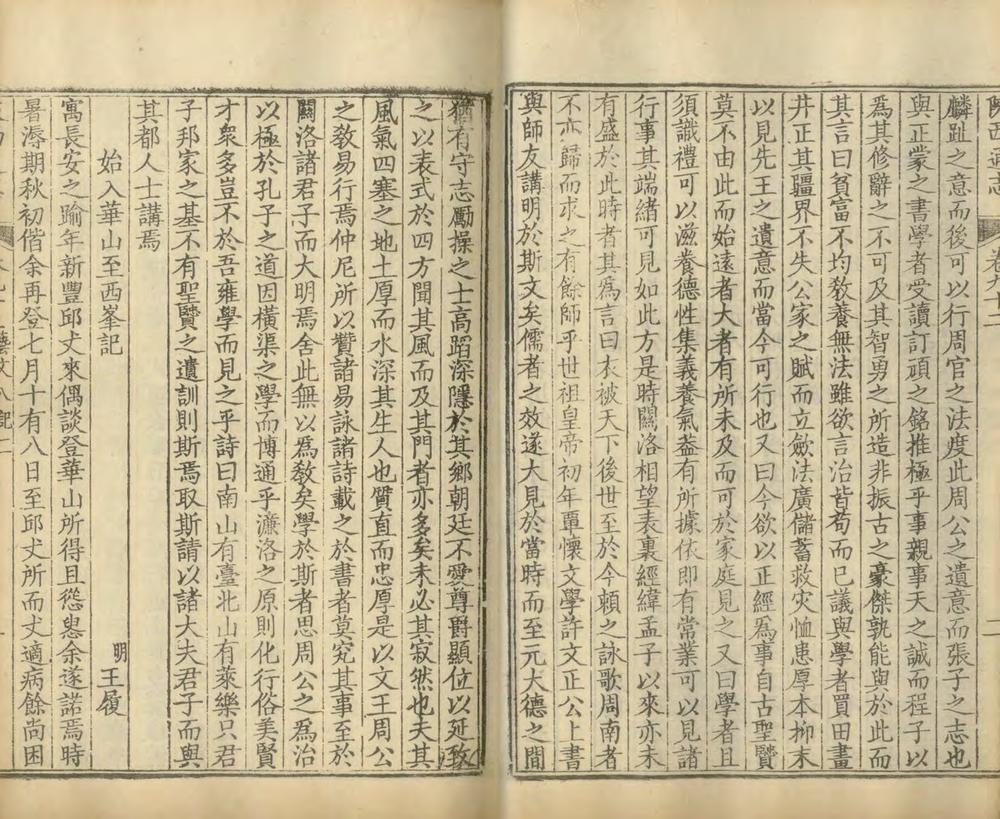 陝西通志 卷九十二 二
麟趾之意而後可以行周官之法度此周公之遺意而張子之志也
與正蒙之書學者受讀訂頑之銘推極乎事親事天之誠而程子以
為其修辭之不可及其智勇之所造非振古之豪傑孰能與於此而
其言曰貧富不均敎養無法雖欲言治皆苟而已議與學者買田畫
井正其疆界不失公家之賦而立歛法廣儲蓄救灾恤患厚本抑末
以見先王之遺意而當今可行也又曰今欲以正經爲事自古聖賢
莫不由此而始遠者大者有所未及而可於家庭見之又曰學者且
須識禮可以滋養德性集義養氣葢有所據依即有常業可以見諸
行事其端緒可見如此方是時關洛相望表裏經緯孟子以來亦未
有盛於此時者其爲言曰衣被天下後世至於今頼之詠歌周南者
不亦歸而求之有餘師乎世祖皇帝初年覃懷文學許文正公上書
與師友講明於斯文矣儒者之效遂大見於當時而至元大德之間
猶有守志勵操之士高蹈深隱於其鄉朝廷不愛尊爵顯位以延致
之以表式於四方聞其風而及其門者亦多矣未必其寂然也夫其
風氣四塞之地土厚而水深其生人也質直而忠厚是以文王周公
之敎易行焉仲尼所以贊諸易詠諸詩載之於書者莫究其事至於
關洛諸君子而大明焉舍此無以爲敎矣學於斯者思周公之爲治
以極於孔子之道因橫渠之學而博通乎濂洛之原則化行俗美賢
才衆多豈不於吾雍學而見之乎詩曰南山有臺北山有萊樂只君
子邦家之基不有聖賢之遺訓則斯焉取斯請以諸大夫君子而與
其都人士講焉
始入華山至西峯記
明 王履
寓長安之踰年新豐邱𠀋來偶談登華山所得且慫恿余遂諾焉時
暑溽期秋初偕余再登七月十有八日至邱𠀋所而𠀋適病餘尚困
藝文八 記二